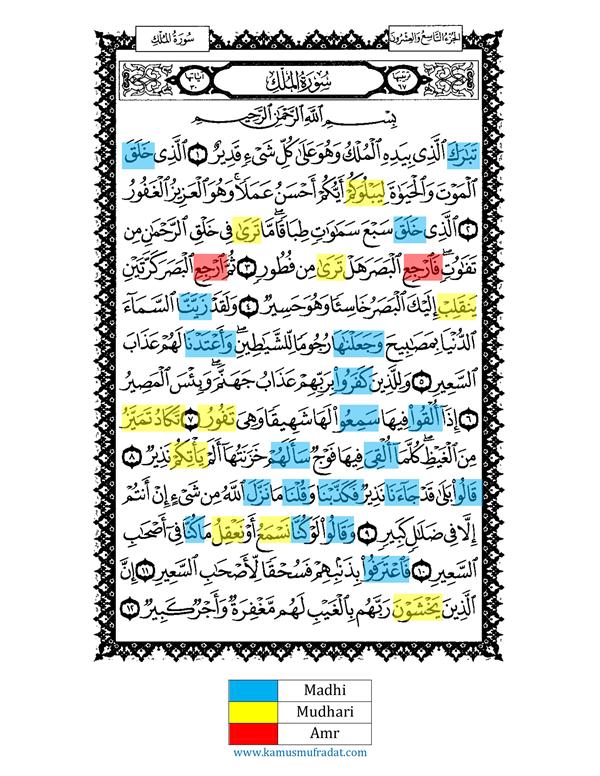 سُورَةُ المُلْكِ
الجُزْءُ التَّاسِعُ وَالعِشْرُونَ
آيَاتُهَا ٣٠
سُورَةُ المُلْكِ
تَرْتِيبُهَا ٦٧
بِسْمِ ٱللَّهِ ٱلرَّحْمَٰنِ ٱلرَّحِيمِ
تَبَٰرَكَ ٱلَّذِى بِيَدِهِ ٱلْمُلْكُ وَهُوَ عَلَىٰ كُلِّ شَىْءٍ قَدِيرٌ ١ ٱلَّذِى خَلَقَ
ٱلْمَوْتَ وَٱلْحَيَوٰةَ لِيَبْلُوَكُمْ أَيُّكُمْ أَحْسَنُ عَمَلًا ۚ وَهُوَ ٱلْعَزِيزُ ٱلْغَفُورُ
٢ ٱلَّذِى خَلَقَ سَبْعَ سَمَٰوَٰتٍ طِبَاقًا ۖ مَّا تَرَىٰ فِى خَلْقِ ٱلرَّحْمَٰنِ مِن
تَفَٰوُتٍ ۖ فَٱرْجِعِ ٱلْبَصَرَ هَلْ تَرَىٰ مِن فُطُورٍ ٣ ثُمَّ ٱرْجِعِ ٱلْبَصَرَ كَرَّتَيْنِ
يَنقَلِبْ إِلَيْكَ ٱلْبَصَرُ خَاسِئًا وَهُوَ حَسِيرٌ ٤ وَلَقَدْ زَيَّنَّا ٱلسَّمَآءَ
ٱلدُّنْيَا بِمَصَٰبِيحَ وَجَعَلْنَٰهَا رُجُومًا لِّلشَّيَٰطِينِ ۖ وَأَعْتَدْنَا لَهُمْ عَذَابَ
ٱلسَّعِيرِ ٥ وَلِلَّذِينَ كَفَرُوا۟ بِرَبِّهِمْ عَذَابُ جَهَنَّمَ ۖ وَبِئْسَ ٱلْمَصِيرُ
٦ إِذَآ أُلْقُوا۟ فِيهَا سَمِعُوا۟ لَهَا شَهِيقًا وَهِىَ تَفُورُ ٧ تَكَادُ تَمَيَّزُ
مِنَ ٱلْغَيْظِ ۖ كُلَّمَآ أُلْقِىَ فِيهَا فَوْجٌ سَأَلَهُمْ خَزَنَتُهَآ أَلَمْ يَأْتِكُمْ نَذِيرٌ ٨
قَالُوا۟ بَلَىٰ قَدْ جَآءَنَا نَذِيرٌ فَكَذَّبْنَا وَقُلْنَا مَا نَزَّلَ ٱللَّهُ مِن شَىْءٍ إِنْ أَنتُمْ
إِلَّا فِى ضَلَٰلٍ كَبِيرٍ ٩ وَقَالُوا۟ لَوْ كُنَّا نَسْمَعُ أَوْ نَعْقِلُ مَا كُنَّا فِىٓ أَصْحَٰبِ
ٱلسَّعِيرِ ١٠ فَٱعْتَرَفُوا۟ بِذَنۢبِهِمْ فَسُحْقًا لِّأَصْحَٰبِ ٱلسَّعِيرِ ١١ إِنَّ
ٱلَّذِينَ يَخْشَوْنَ رَبَّهُم بِٱلْغَيْبِ لَهُم مَّغْفِرَةٌ وَأَجْرٌ كَبِيرٌ ١٢
Madhi
Mudhari
Amr
www.kamusmufradat.com